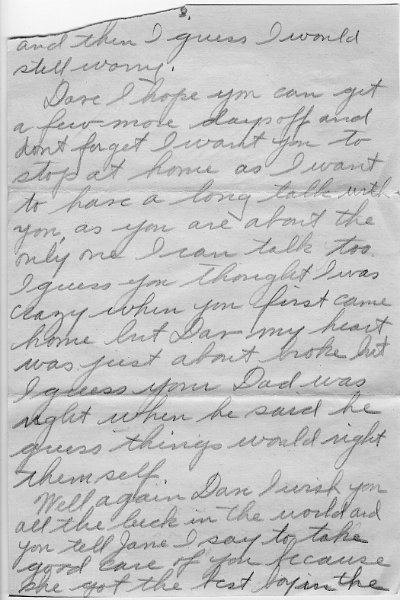 8.
and then I guess I would
still worry.
Dave I hope you can get
a few more days off and
dont forget I want you to
stop at home as I want
to have a long talk with
you, as you are about the
only one I can talk too.
I guess you thought I was
crazy when you first came
home but Dave my heart
was just about broke but
I guess your Dad was
right when he said he
guess things would right
them self.
Well again Dave I wish you
all the luck in the world and
you tell Jane I say to take
good care of you because
she got the best boy in the